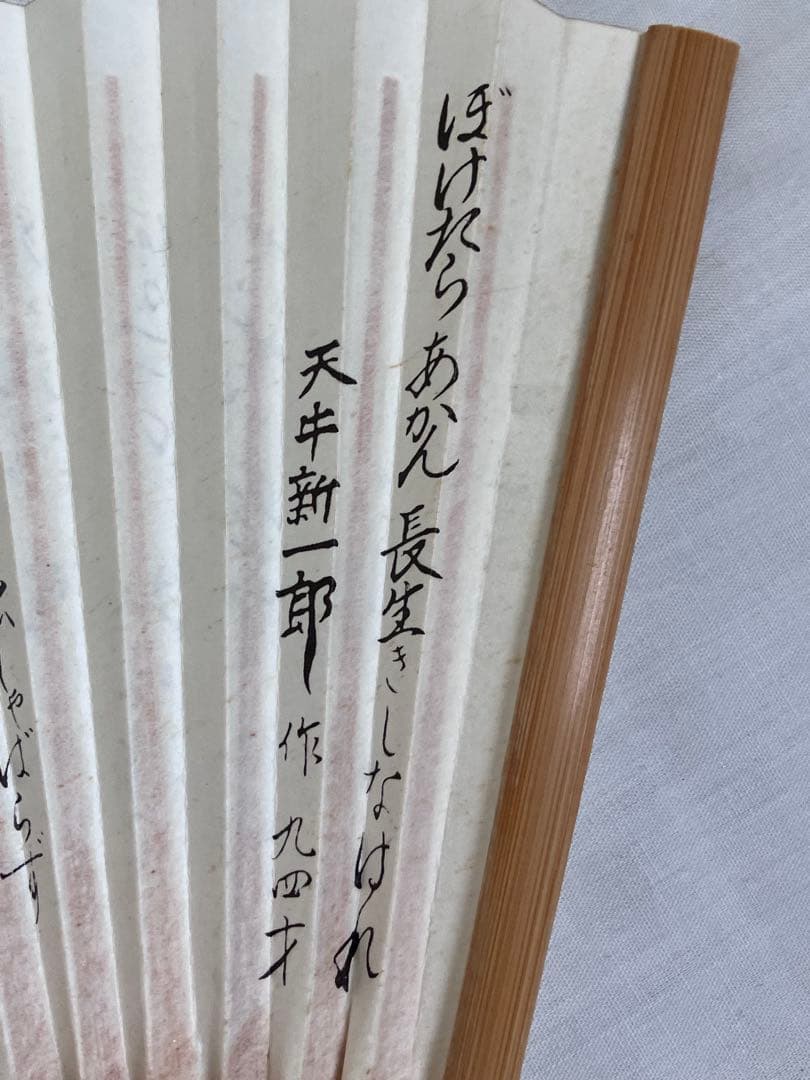 ぼけたらあかん 長生きしなはれ
天牛新一郎 作 九四才
しゃばらず